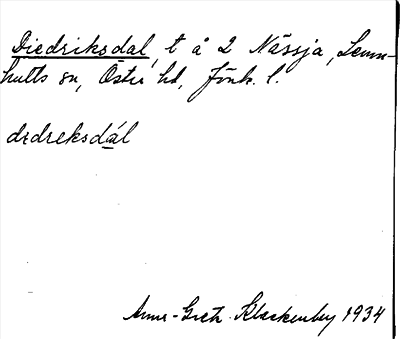 Diedriksdal, t å 2 Nässja, Lemn-
hults sn, Östra hd, Jönk. l.
dɪdreksdál
Anna-Greta Klackenberg 1934